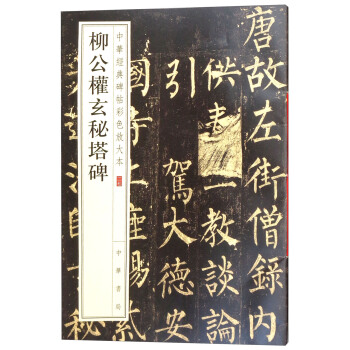 中華經典碑帖彩色放大本
柳公權玄秘塔碑
中華書局
唐故左街僧録内
供奉三教談論
引駕大德安
國寺上座賜紫